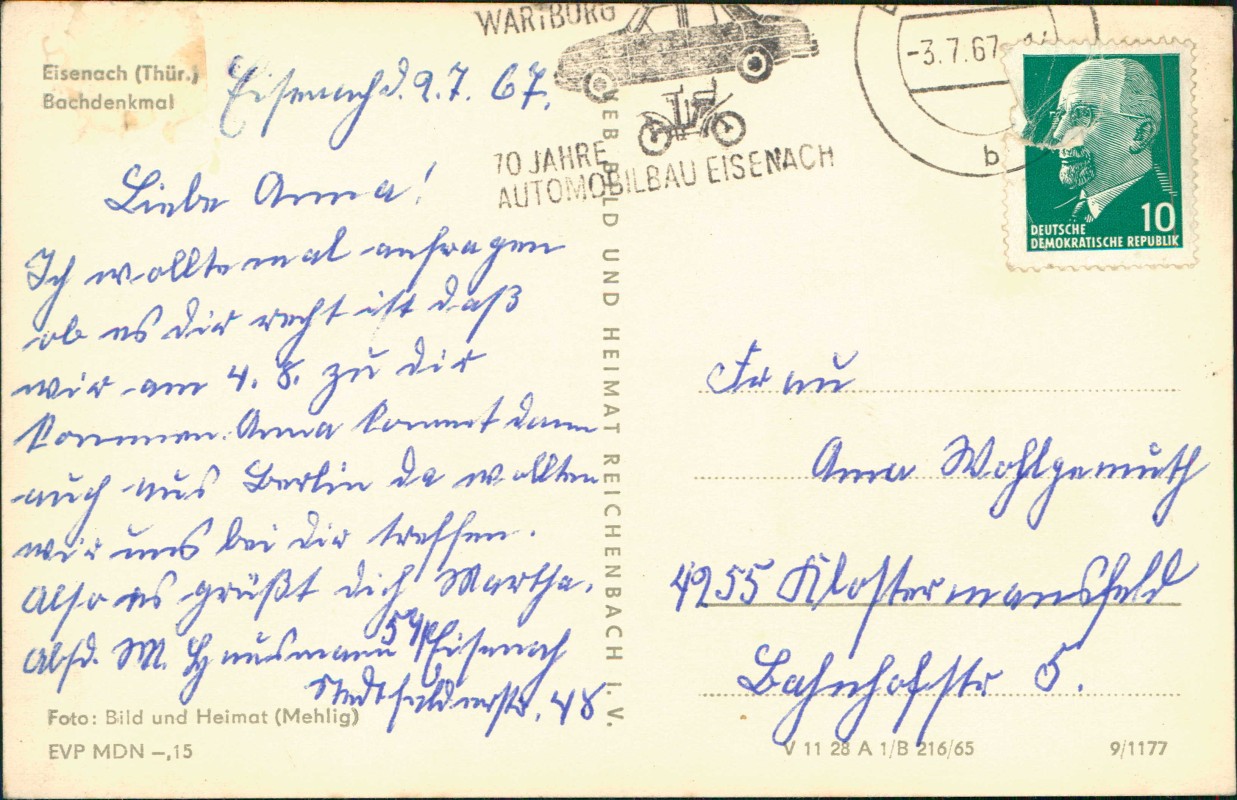 Eisenach (Thür.)
Bachdenkmal
Eisenach d. 2.7.67.
Liebe Anna!
Ich wollte mal anfragen
ob es dir recht ist daß
wir am 4. 8. zu dir
kommen. Anna kommt dann
auch aus Berlin da wollten
wir uns bei dir treffen.
Also es grüßt dich Martha.
Absd. M. Hausmann 59 Eisenach
Stedtfelderstr. 48
Foto: Bild und Heimat (Mehlig)
EVP MDN –,15
WARTBURG
70 JAHRE
AUTOMOBILBAU EISENACH
VEB BILD UND HEIMAT REICHENBACH I. V.
-3.7.67
b
10
DEUTSCHE
DEMOKRATISCHE REPUBLIK
Frau
Anna Wohlgemuth
4255 Klostermansfeld
Bahnhofstr 5.
V 11 28 A 1/B 216/65
9/1177